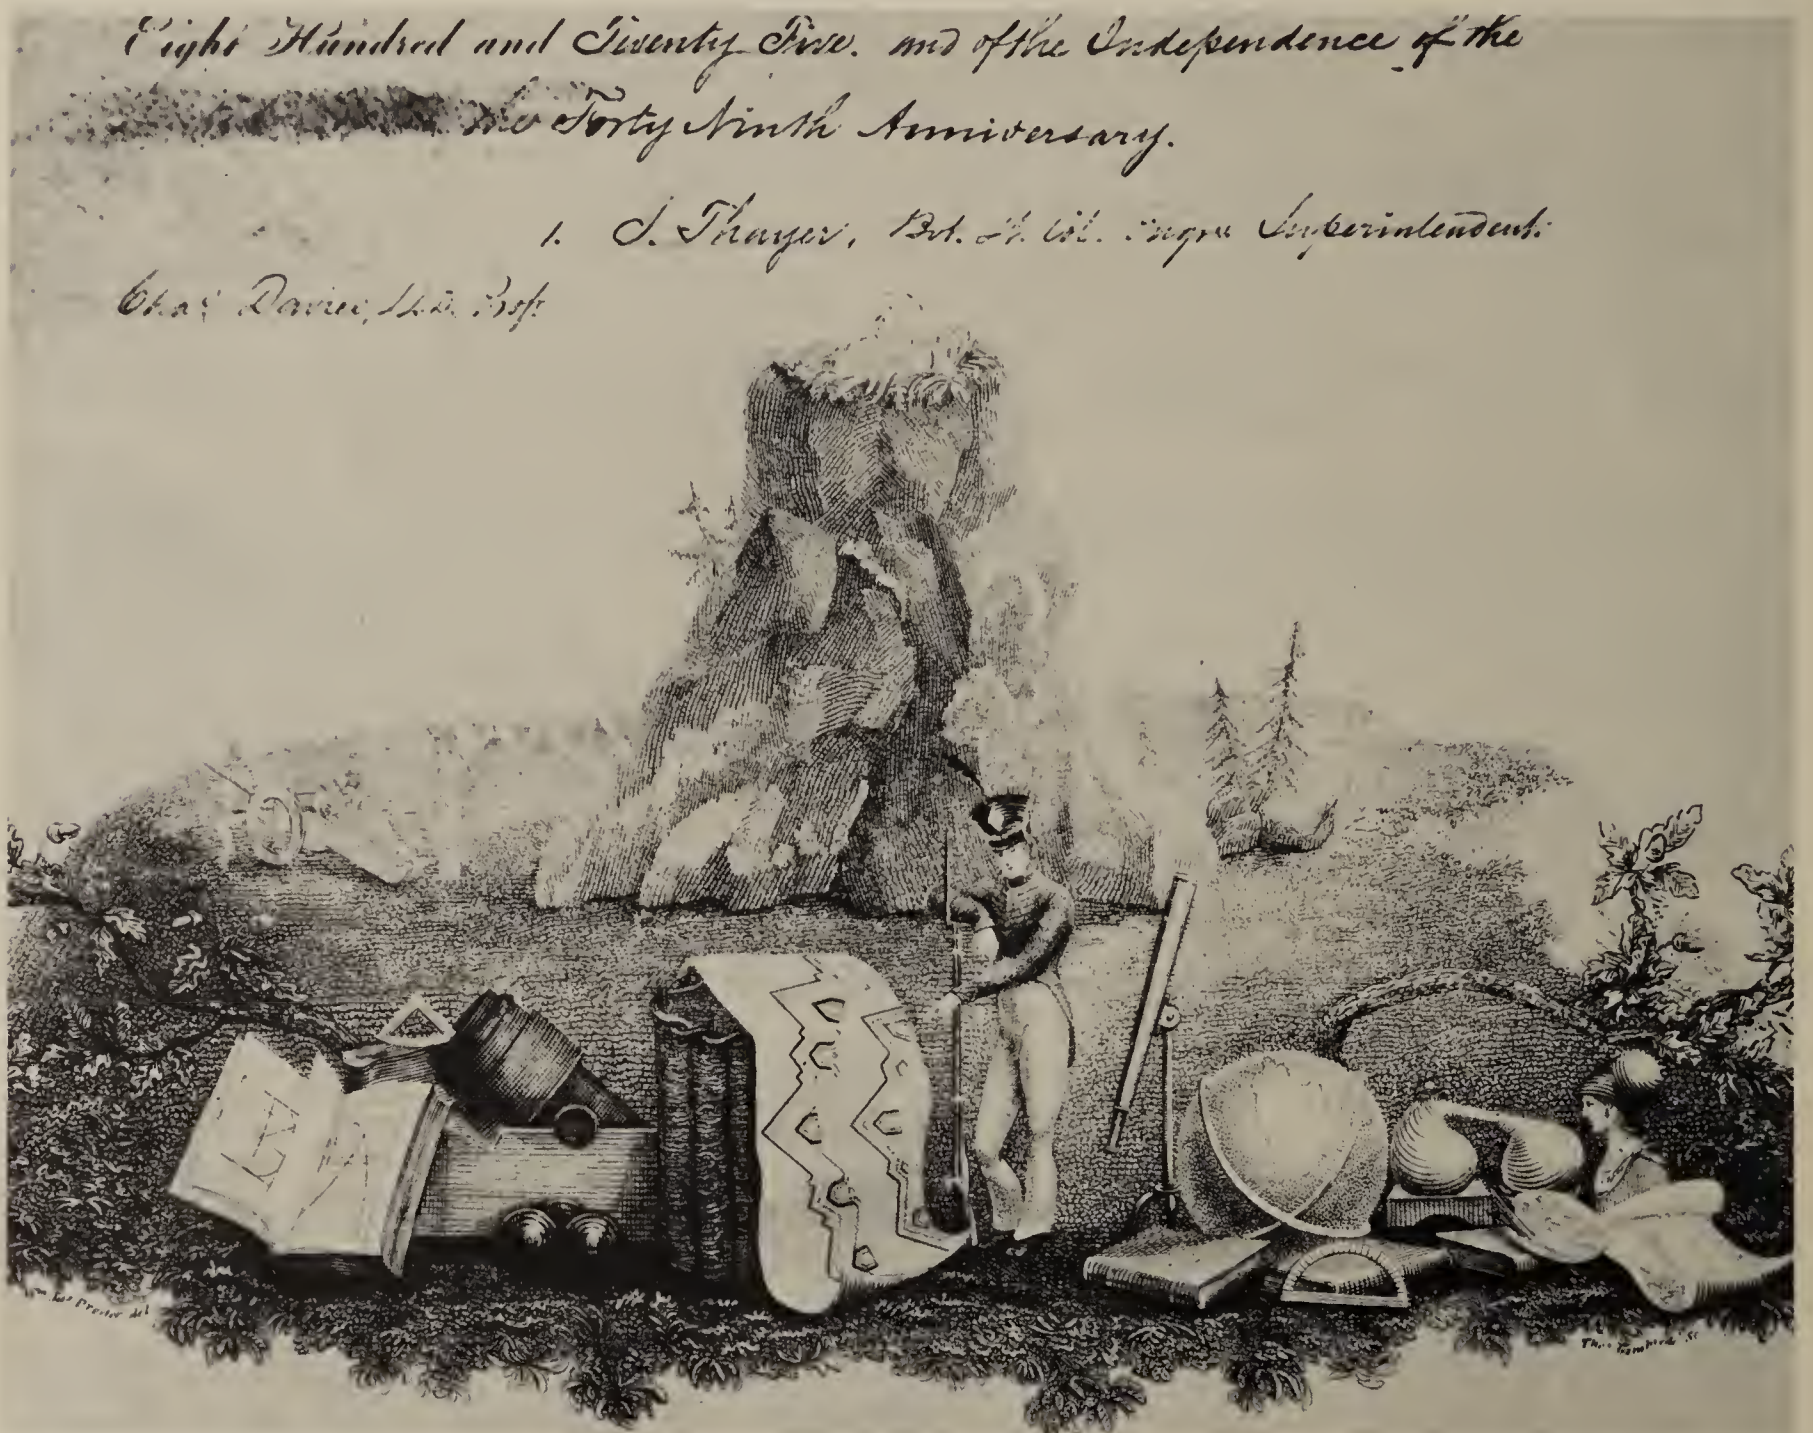 Eight Hundred and Twenty Five. and of the Independence of the
the Forty Ninth Anniversary.
1. S. Thayer, Bvt. Lt. Col. Engrs Superintendent.
Chas. Davies, Prof.